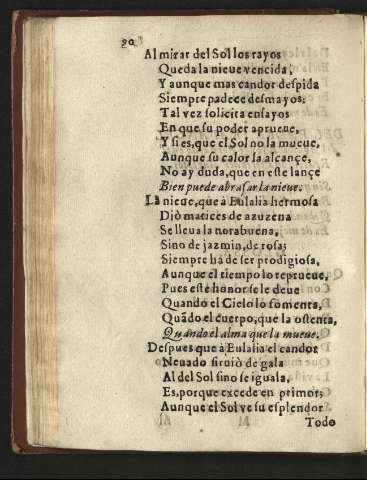 90
Al mirar del Sol los rayos
Queda la nieue vencida,
Y aunque mas candor despida
Siempre padece desmayos;
Tal vez solicita ensayos
En que su poder aprueue,
Y si es, que el Sol no la mueue,
Aunque su calor la alcançe,
No ay duda, que en este lançe
Bien puede abrasar la nieue.
La nieue, que à Eulalia hermosa
Diò matices de azuzena
Se lleua la norabuena,
Sino de jazmin, de rosa;
Siempre ha de ser prodigiosa,
Aunque el tiempo lo reprueue,
Pues este honor se le deue
Quando el Cielo lo fomenta,
Quãdo el cuerpo, que la ostenta,
Quando el alma que la mueue.
Despues que à Eulalia el candor
Neuado siruiò de gala
Al del Sol sino se iguala,
Es, porque excede en primor;
Aunque el Sol ve su esplendor
Todo